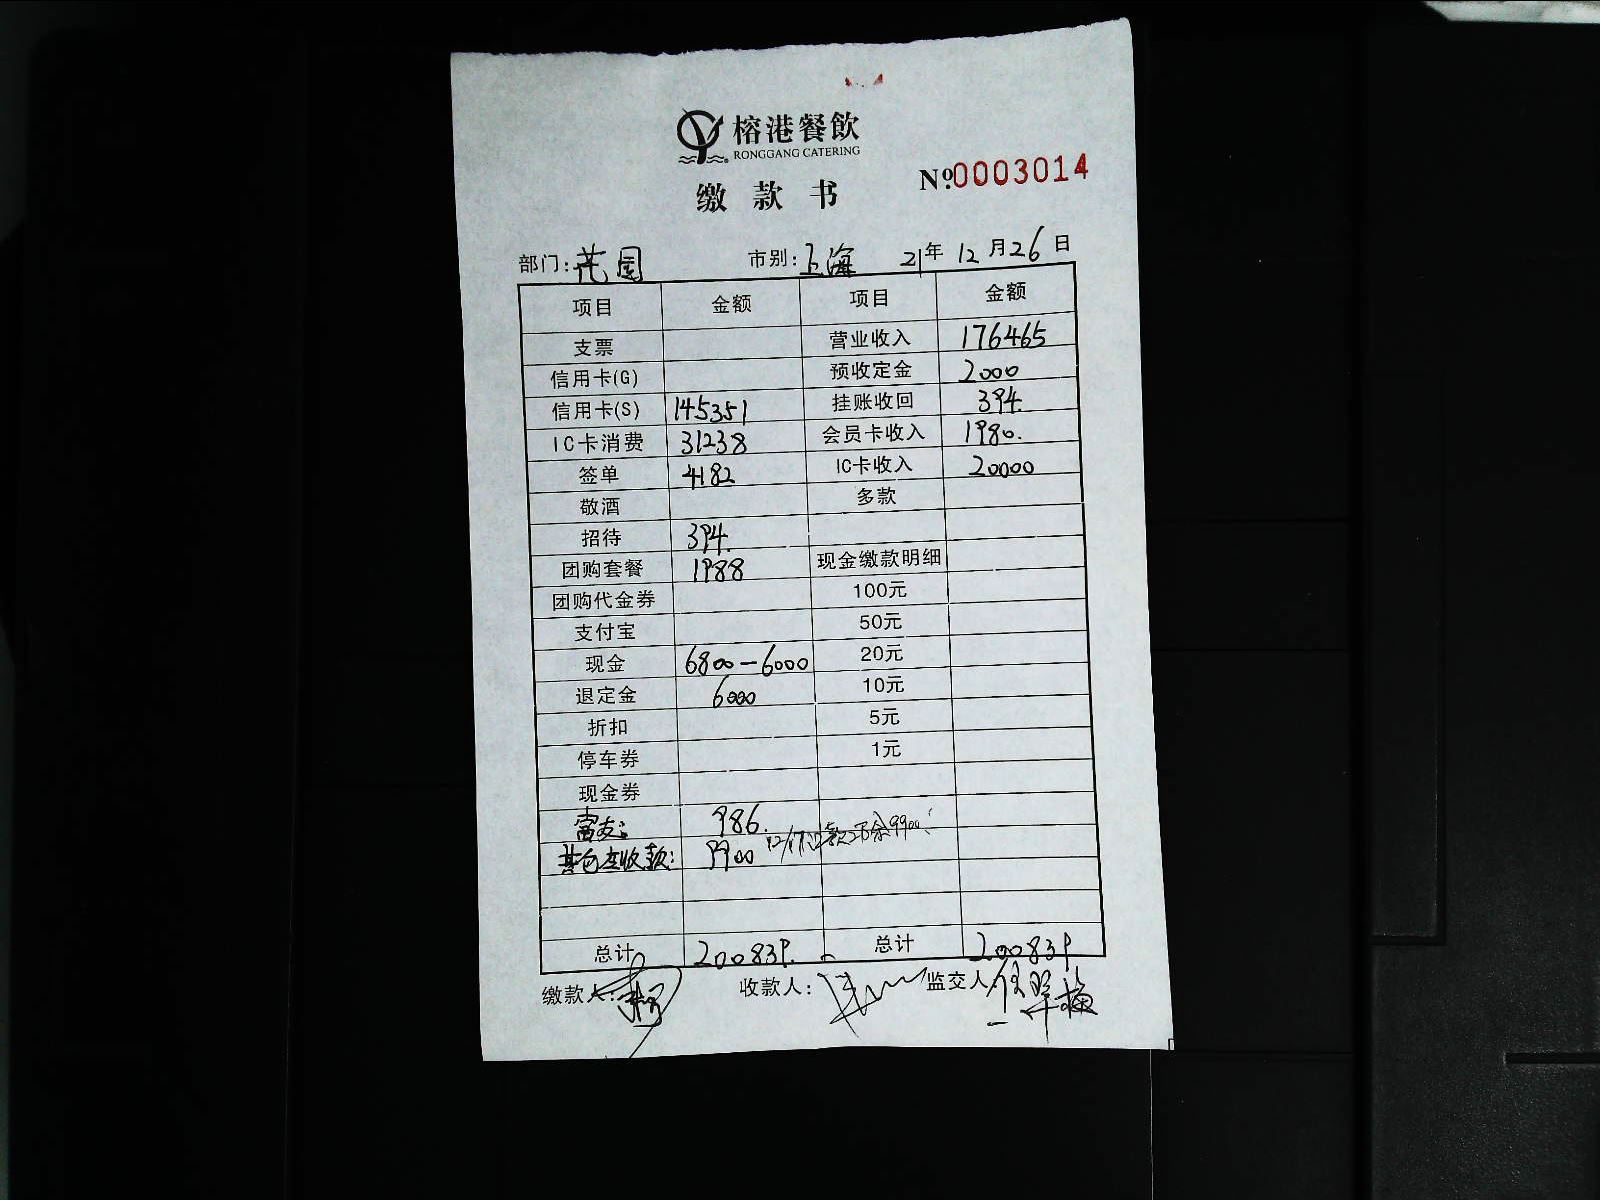 榕港餐飲
RONGGANG CATERING
缴款书
№0003014
部门:花园 市别:上海 21年12月26日
项目 金额 项目 金额
支票 营业收入 176465
信用卡(G) 预收定金 2000
信用卡(S) 145351 挂账收回 394.
IC卡消费 31238 会员卡收入 1980.
签单 4182 IC卡收入 20000
敬酒 多款
招待 394.
团购套餐 1988 现金缴款明细
团购代金券 100元
支付宝 50元
现金 6800-6000 20元
退定金 6000 10元
折扣 5元
停车券 1元
现金券
986.
其它应收款: 9900 12/17
总计 200839. 总计 200839
缴款人: 收款人: 监交人